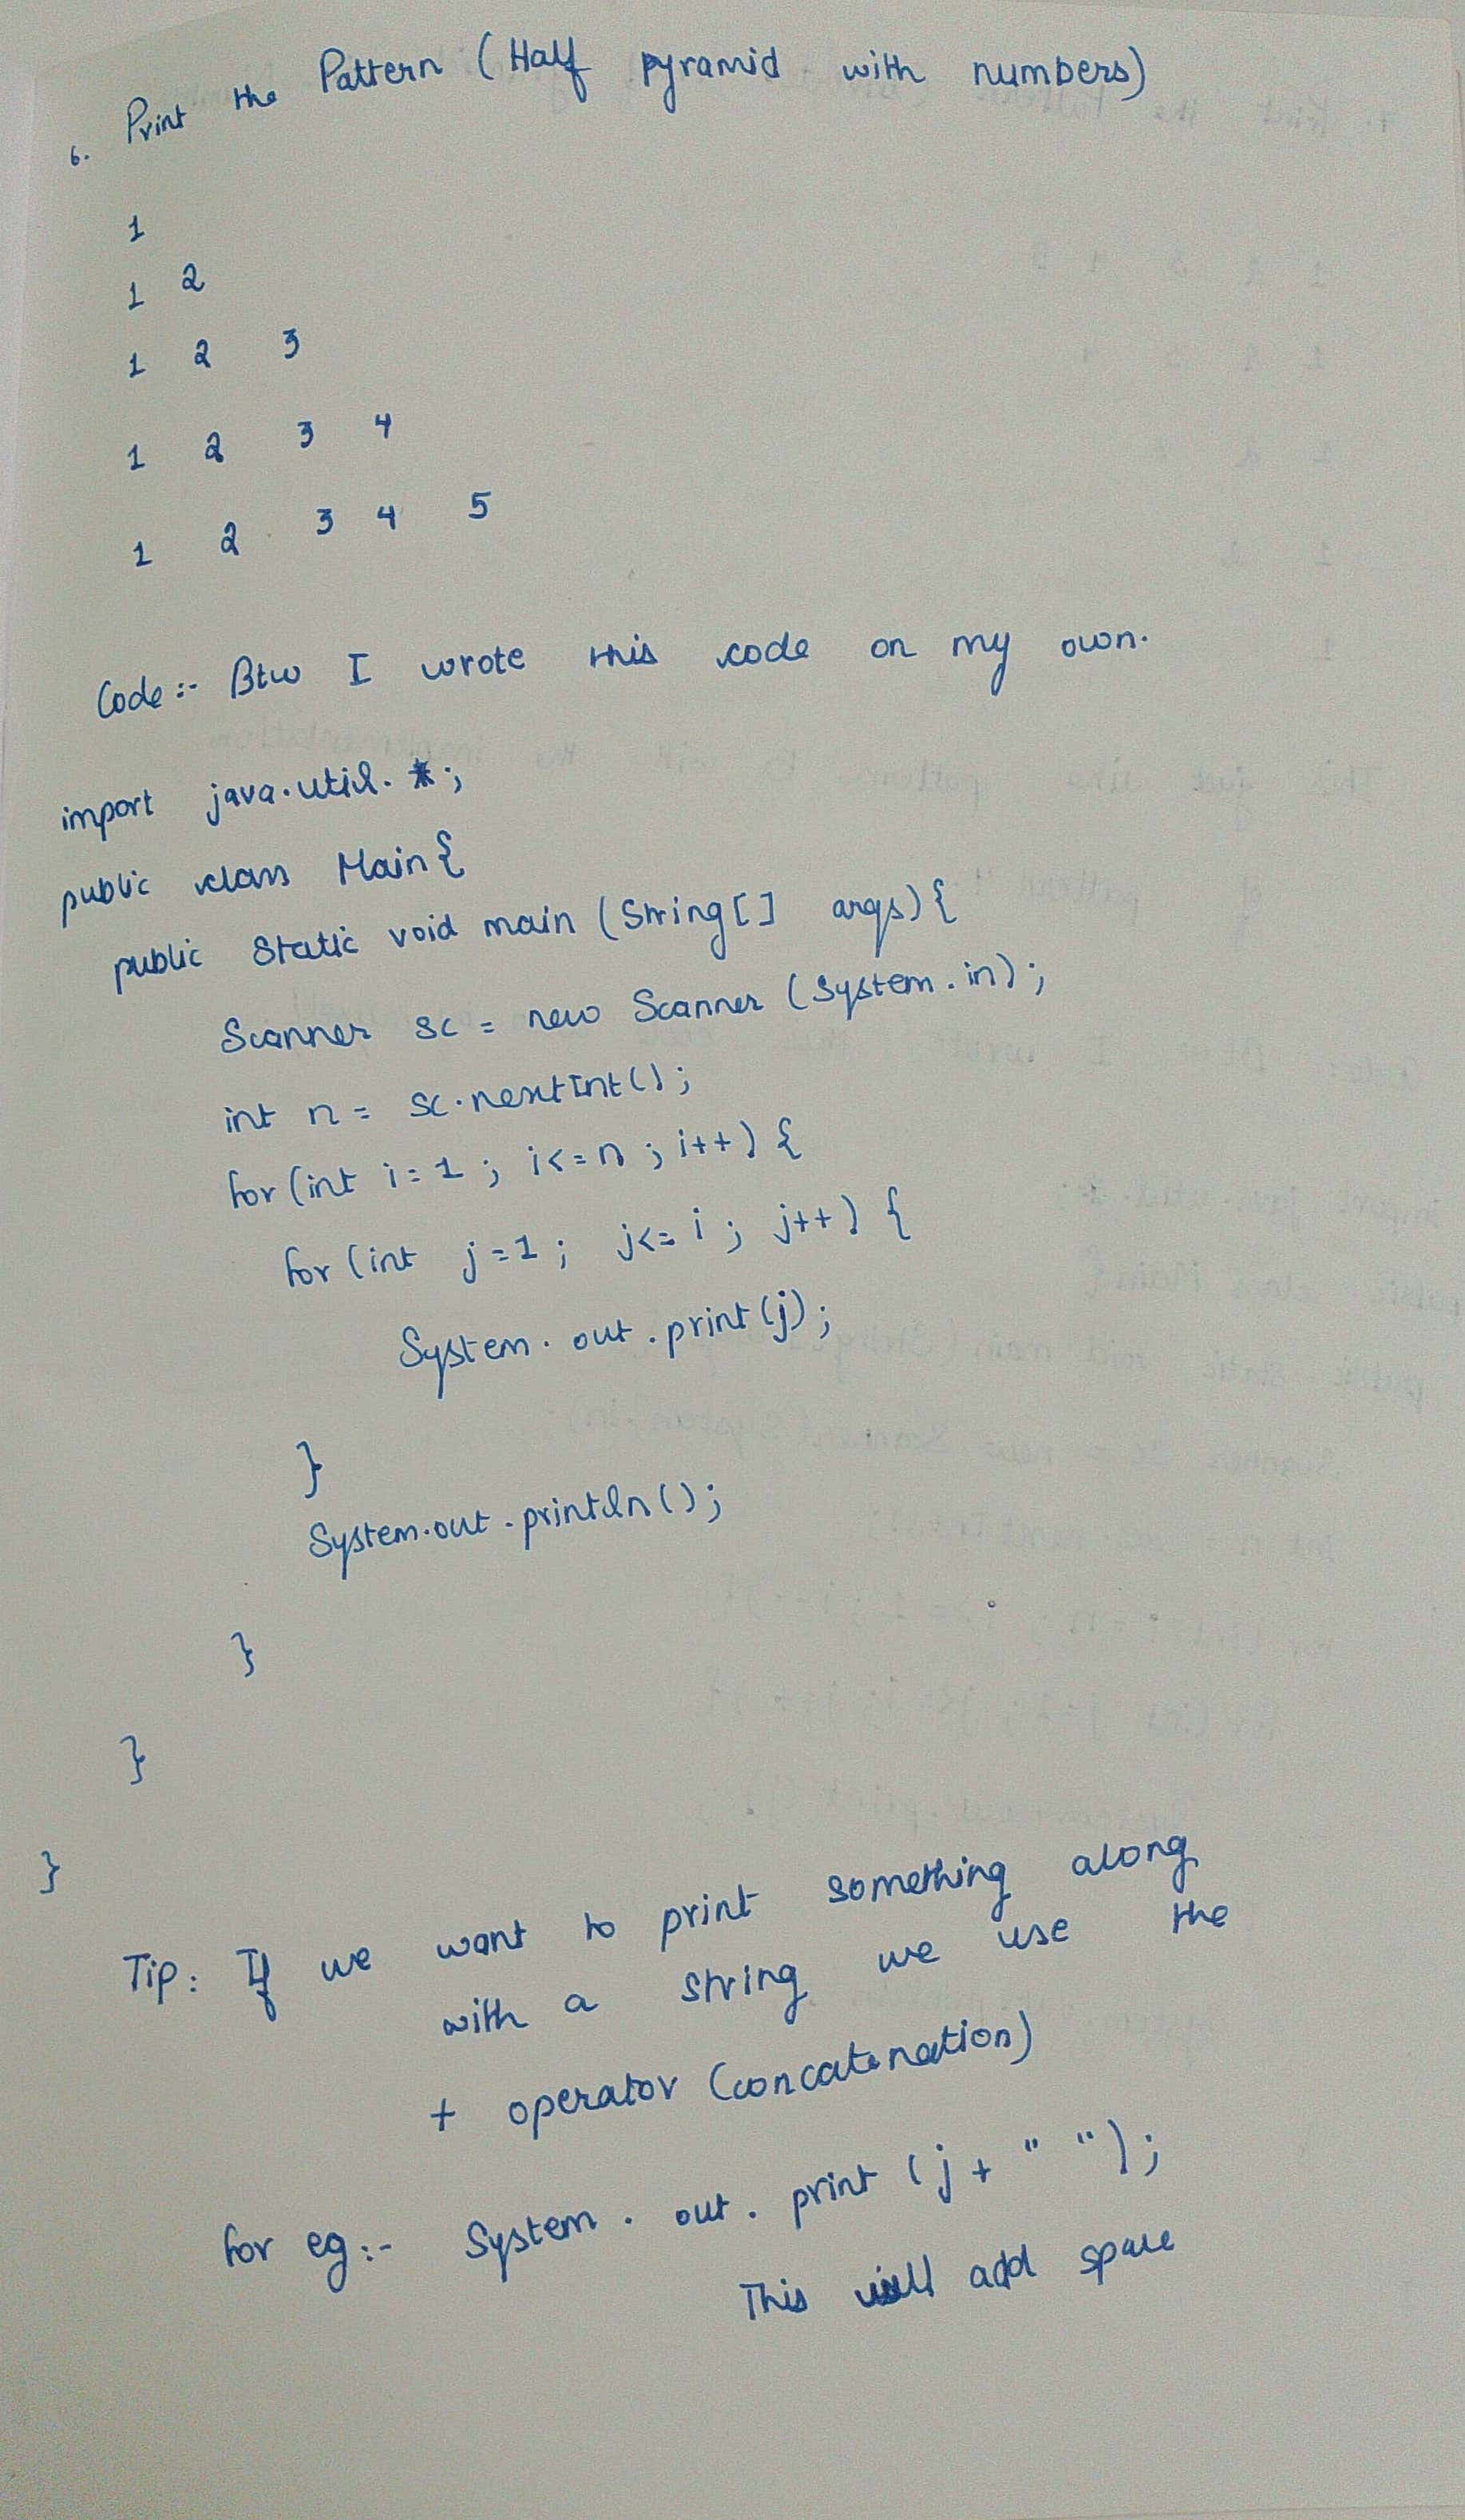 6. Print the Pattern (Half pyramid with numbers)
1
1 2
1 2 3
1 2 3 4
1 2 3 4 5
Code :- Btw I wrote this code on my own.
import java.util.*;
public class Main{
public static void main (String[] args) {
Scanner sc = new Scanner (System.in);
int n = sc.nextInt();
for (int i = 1 ; i<=n ; i++) {
for (int j = 1 ; j<= i ; j++) {
System.out.print(j);
}
System.out.println();
}
}
}
Tip: If we want to print something along
with a string we use the
+ operator (concatenation)
for eg :- System.out.print (j + " ");
This will add space